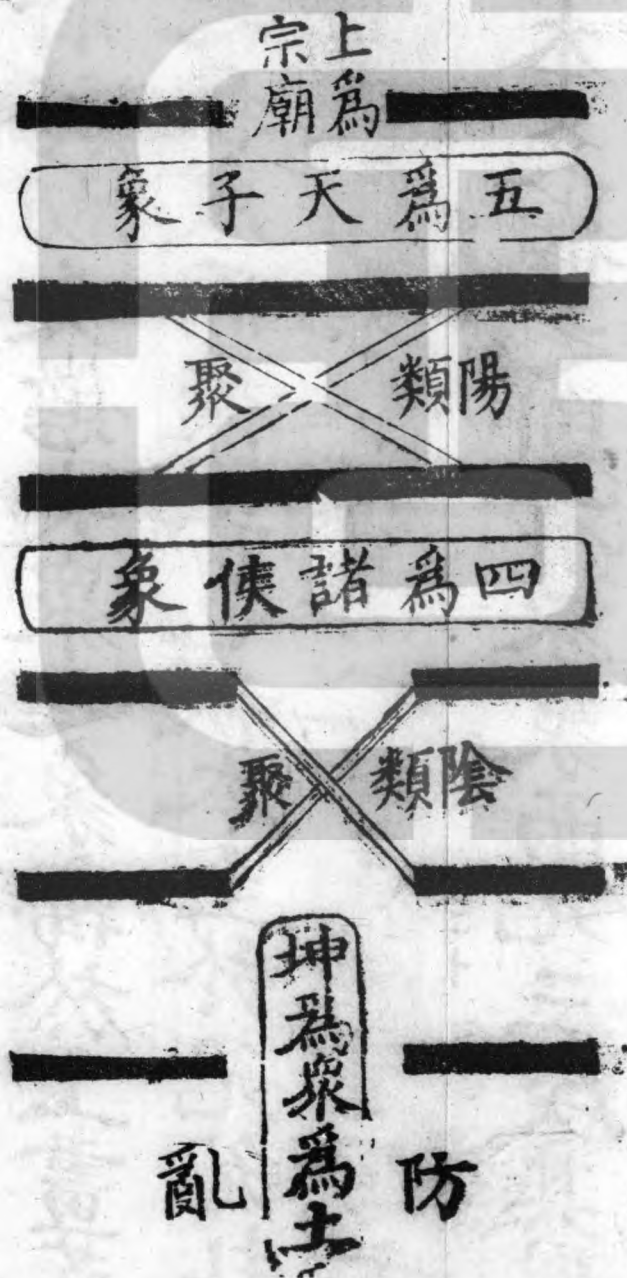 上爲
宗廟
五爲天子象
陽類聚
四爲諸侯象
陰類聚
坤爲衆爲土
防亂